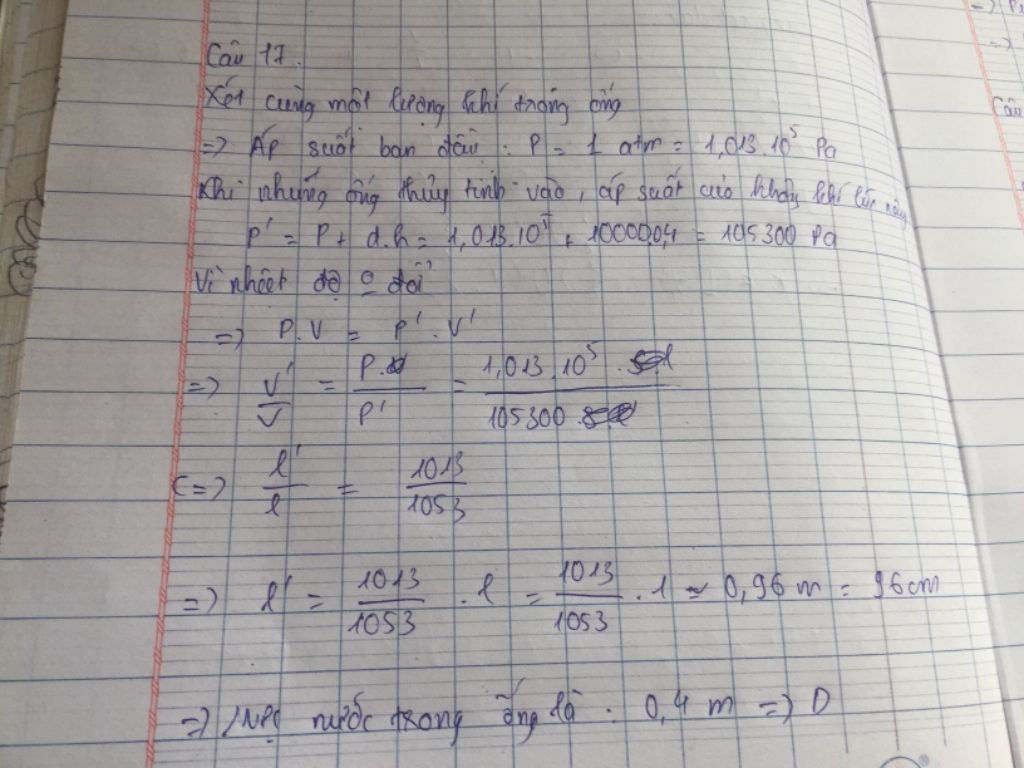 Câu 17.
Xét cùng một lượng khí trong ống
=> Áp suất ban đầu : P = 1 atm = 1,013.10⁵ Pa
Khi nhúng ống thủy tinh vào, áp suất của không khí lúc này
P' = P + d.h = 1,013.10⁵ + 10000.0,4 = 105300 Pa
Vì nhiệt độ đổi
=> P.V = P'.V'
=> V'/V = P./P' = 1,013.10⁵./105300.
<=> l'/l = 1013/1053
=> l' = 1013/1053 . l = 1013/1053 . 1 ≈ 0,96 m = 96cm
=> nước trong ống là : 0,4 m => D
=> P
=>
Câu